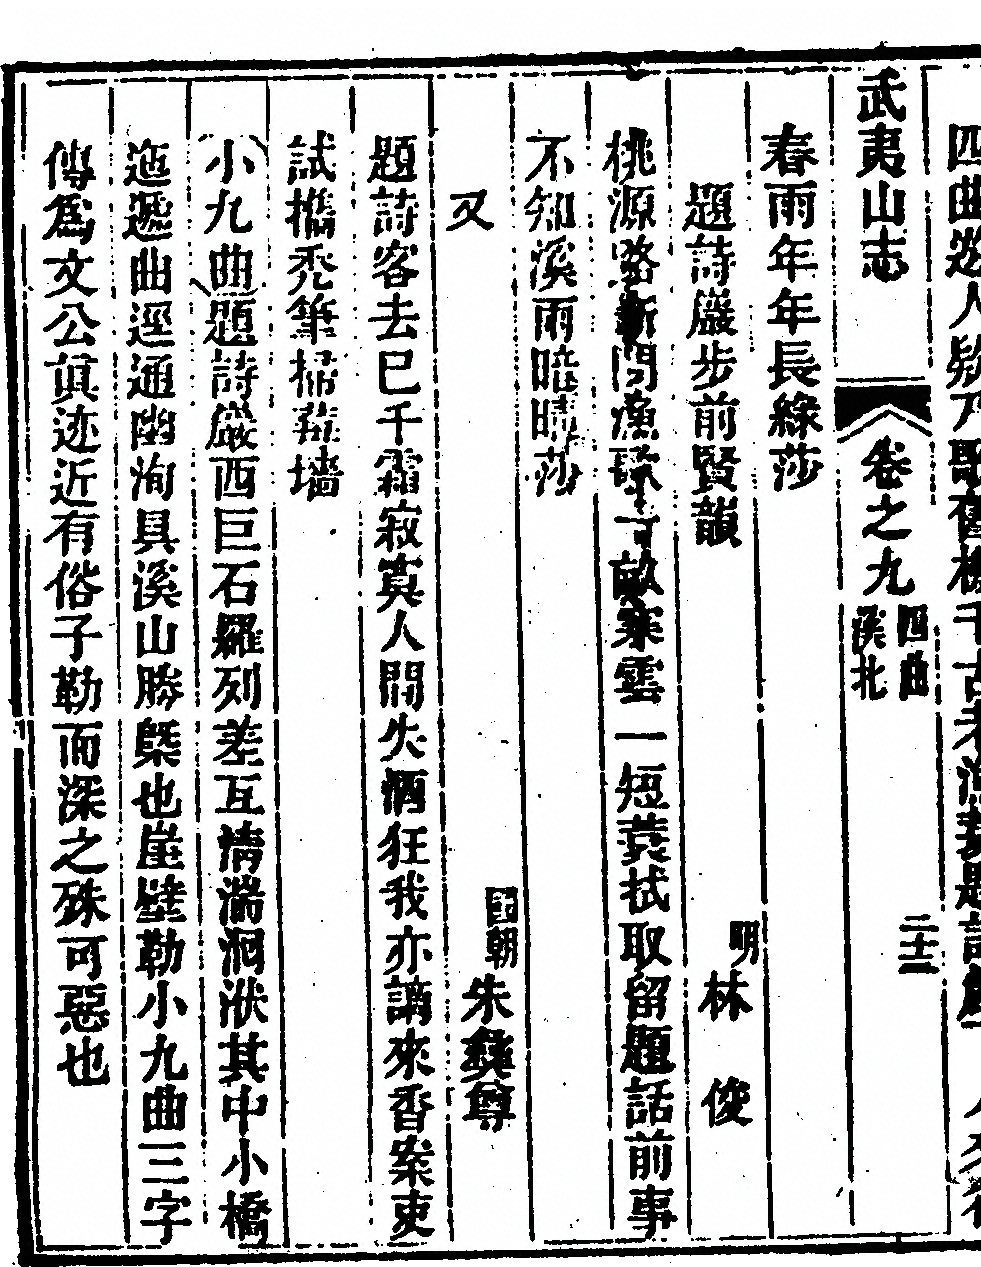 四曲遊人欸乃歌舊
武夷山志 卷之九 四曲溪北 二十二
春雨年年長綠莎
題詩巖步前賢韻 明 林 俊
桃源路斷問漁 可畝寒雲一短蓑拭取留題話前事
不知溪雨暗晴莎
又 國朝 朱彝尊
題詩客去已千霜寂寞人間失酒狂我亦謫來香案吏
試攜禿筆掃莓墻
小九曲題詩巖西巨石羅列差互清湍洄洑其中小橋
迤邐曲逕通幽洵具溪山勝槩也崖壁勒小九曲三字
傳爲文公眞迹近有俗子勒而深之殊可惡也